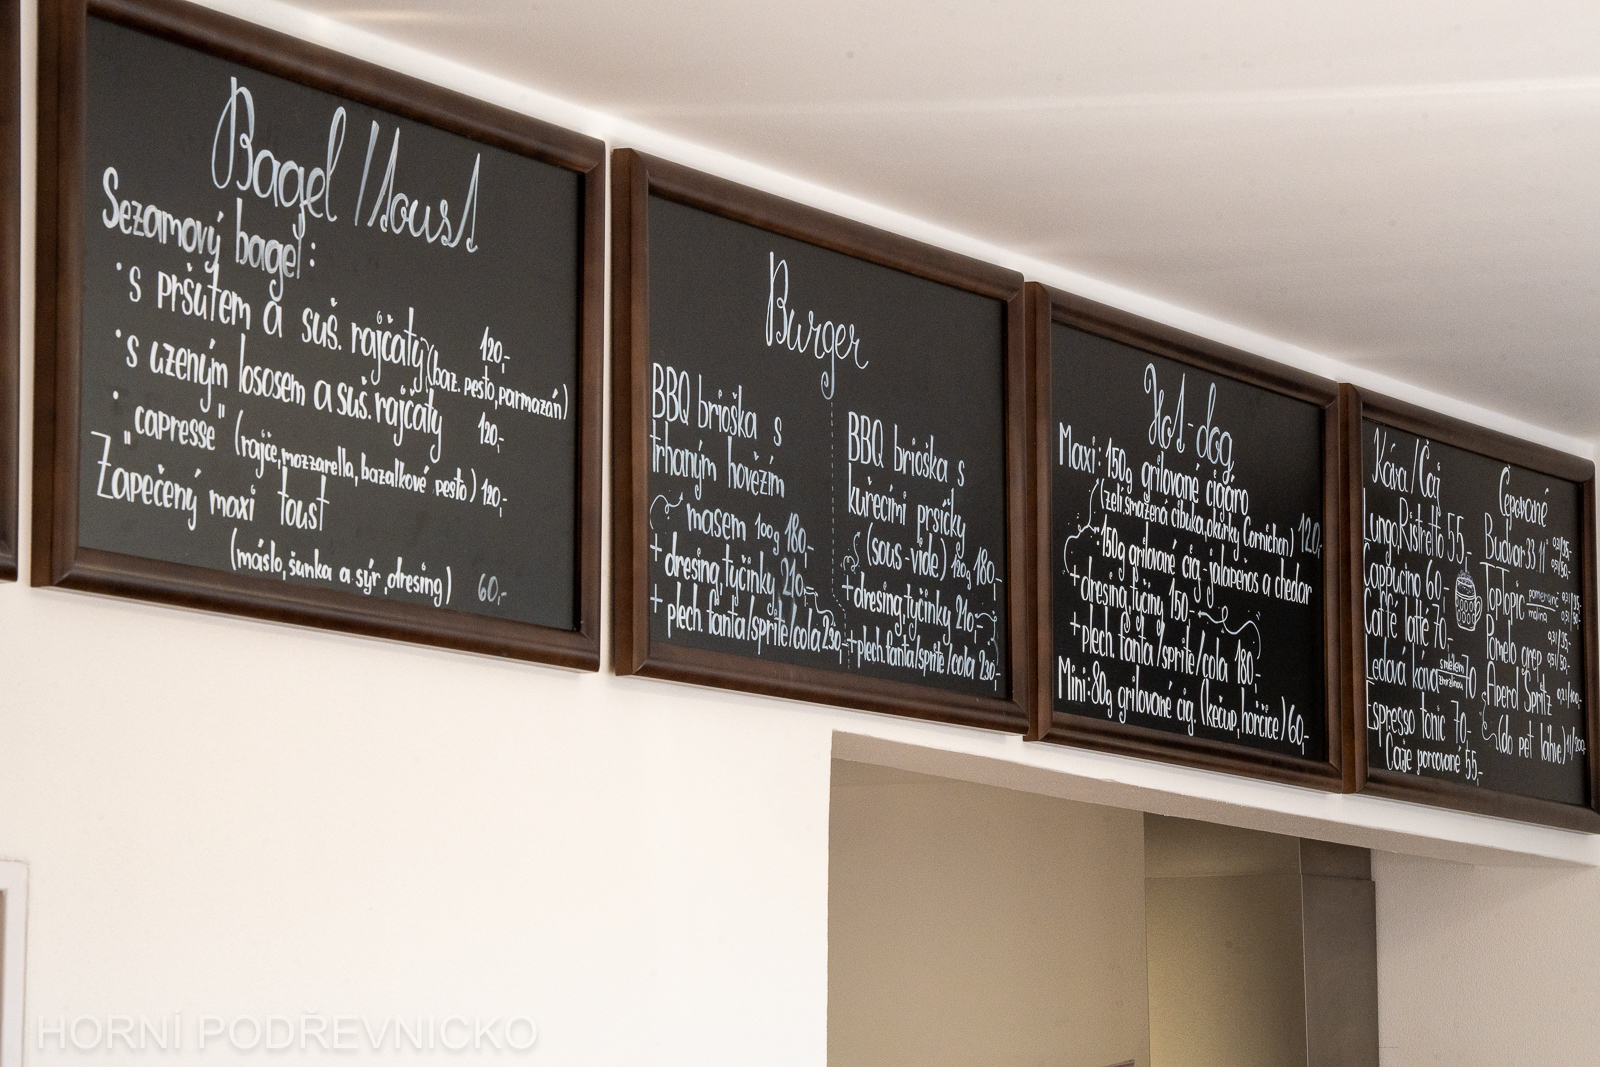 Bagel / Toust
Sezamový bagel:
· s pršutem a suš. rajčaty 120,-
(baz. pesto, parmazán)
· s uzeným lososem a suš. rajčaty 120,-
· "capresse" (rajče, mozzarella, bazalkové pesto) 120,-
Zapečený maxi toust
(máslo, šunka a sýr, dresing) 60,-
Burger
BBQ brioška s
trhaným hovězím
masem 100g 180,-
+ dresing, tyčinky 210,-
+ plech. fanta/sprite/cola 230,-
BBQ brioška s
kuřecími prsíčky
(sous-vide) 120g 180,-
+ dresing, tyčinky 210,-
+ plech. fanta/sprite/cola 230,-
Hot-dog
Maxi: 150g grilované cigáro
(zelí, smažená cibulka, okurky Cornichon) 120,-
150g grilované cig - jalapenos a chedar
+ dresing, tyčiny 150,-
+ plech. fanta/sprite/cola 180,-
Mini: 80g grilované cig. (kečup, hořčice) 60,-
Káva/Čaj
Lungo, Ristretto 55,-
Cappucino 60,-
Caffé latté 70,-
Ledová káva 70
Espresso tonic 70,-
Čaje porcované 55,-
Čepované
Budvar 33 11°
Toptopic
malina
Pomelo grep
Aperol Spritz
(do pet lahve)
HORNÍ PODŘEVNICKO